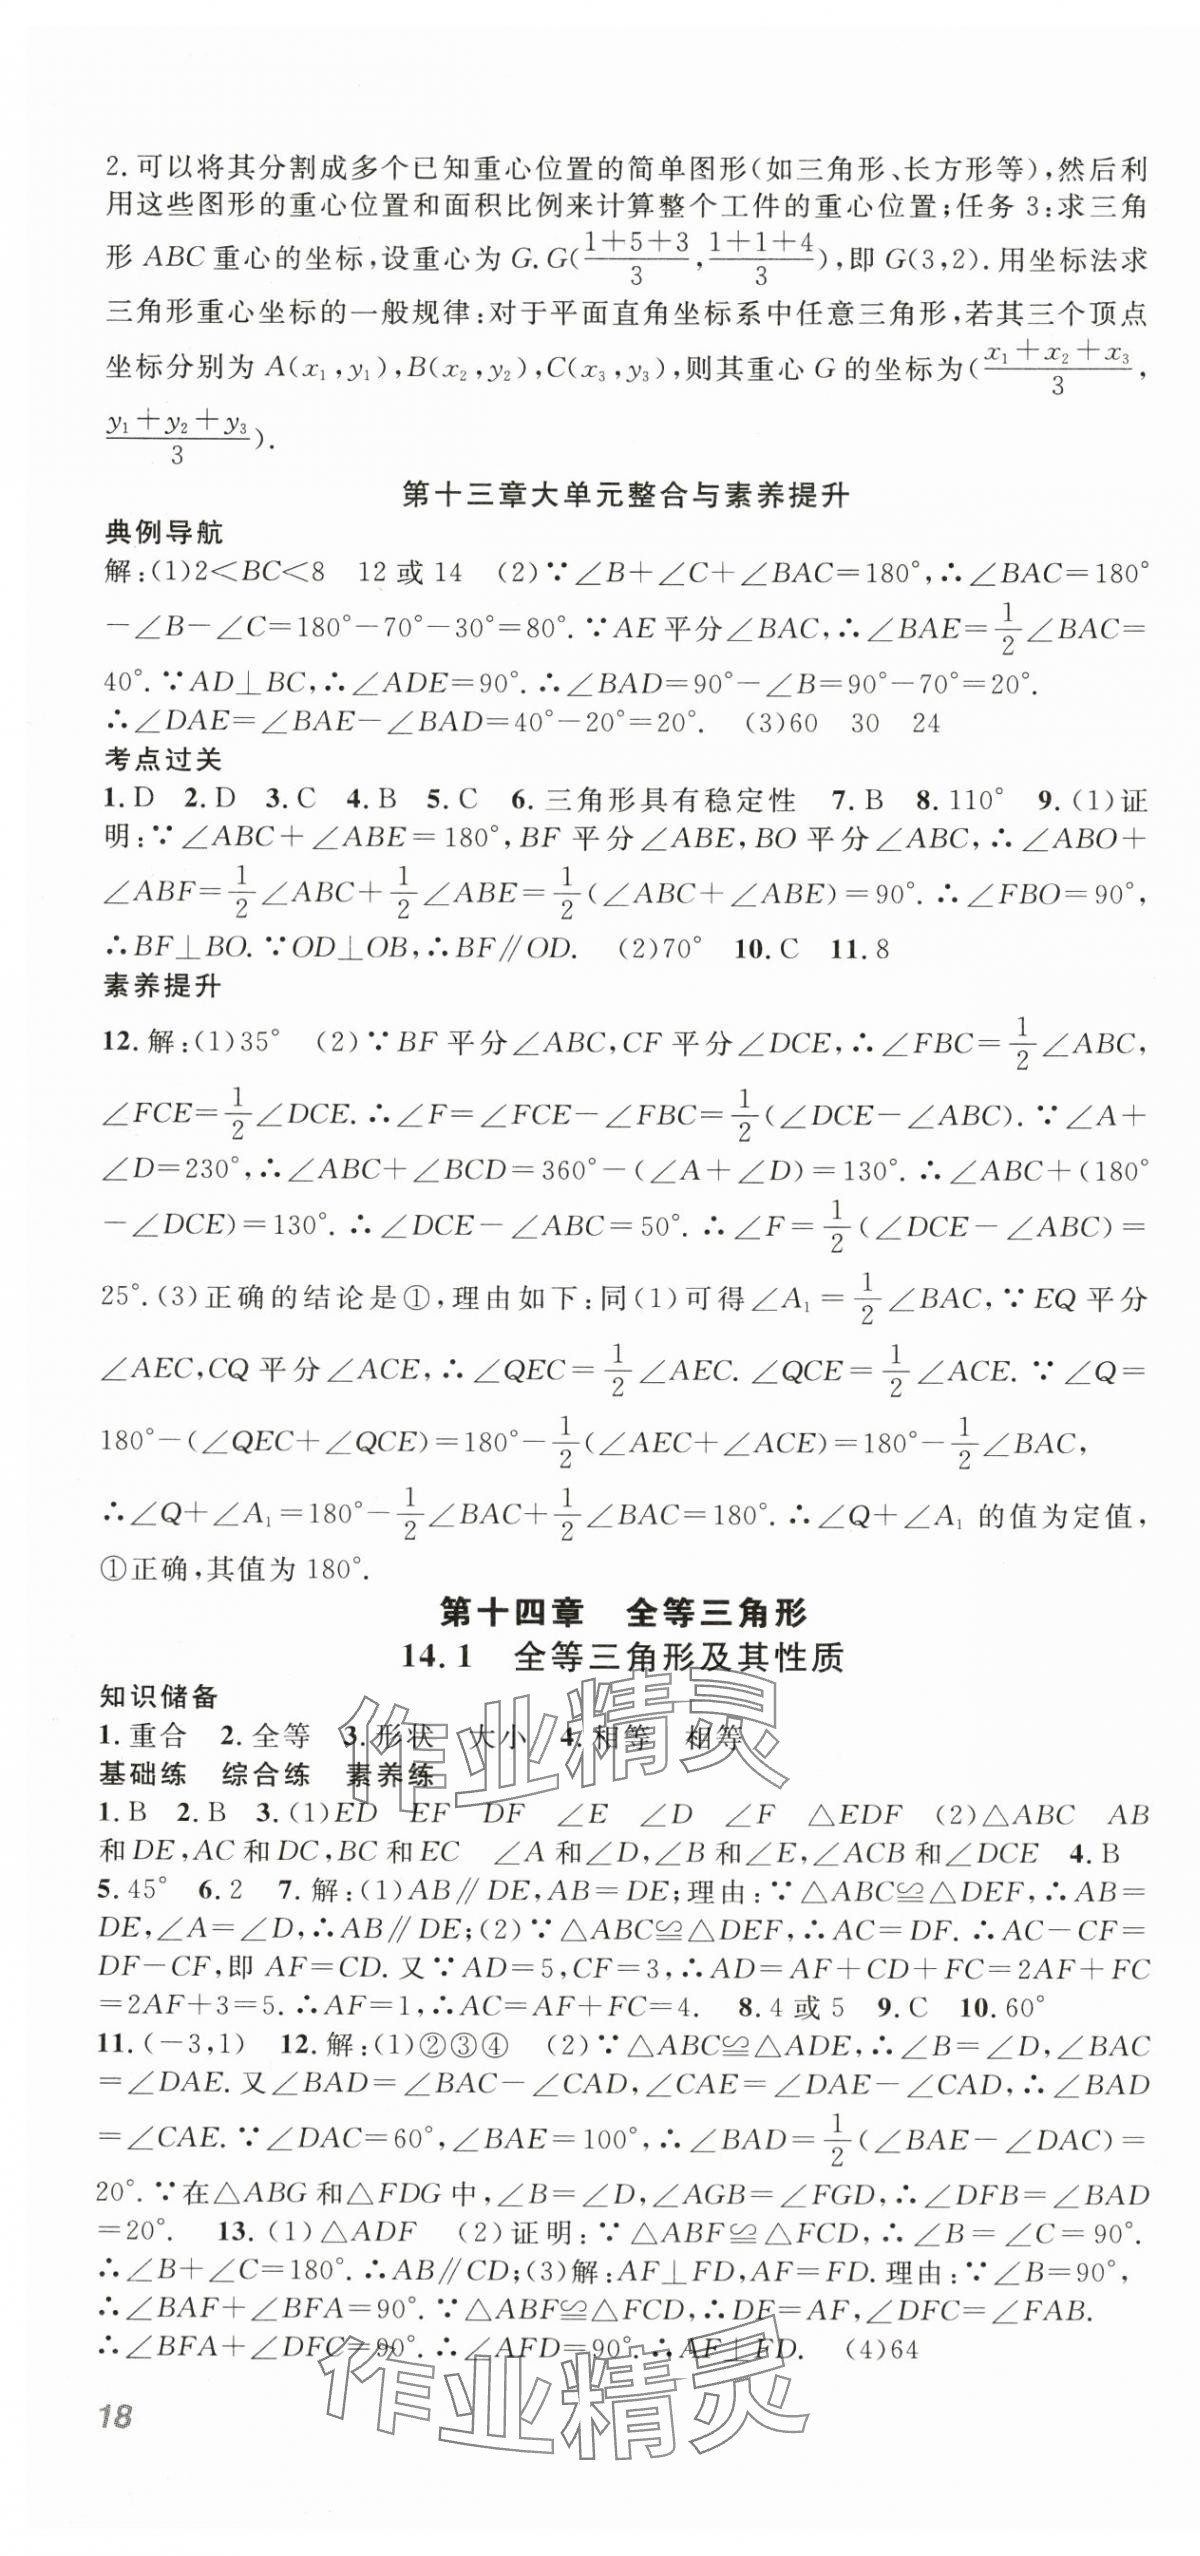 2.可以将其分割成多个已知重心位置的简单图形(如三角形、长方形等),然后利
用这些图形的重心位置和面积比例来计算整个工件的重心位置;任务3:求三角
形ABC重心的坐标,设重心为G.G(\frac{1+5+3}{3},\frac{1+1+4}{3}),即G(3,2).用坐标法求
三角形重心坐标的一般规律:对于平面直角坐标系中任意三角形,若其三个顶点
坐标分别为A(x₁,y₁),B(x₂,y₂),C(x₃,y₃),则其重心G的坐标为(\frac{x₁+x₂+x₃}{3},
\frac{y₁+y₂+y₃}{3}).
第十三章大单元整合与素养提升
典例导航
解:(1)2<BC<8 12或14 (2)∵∠B+∠C+∠BAC=180°,∴∠BAC=180°
-∠B-∠C=180°-70°-30°=80°.∵AE平分∠BAC,∴∠BAE=\frac{1}{2}∠BAC=
40°.∵AD⊥BC,∴∠ADE=90°.∴∠BAD=90°-∠B=90°-70°=20°.
∴∠DAE=∠BAE-∠BAD=40°-20°=20°. (3)60 30 24
考点过关
1.D 2.D 3.C 4.B 5.C 6.三角形具有稳定性 7.B 8.110° 9.(1)证
明:∵∠ABC+∠ABE=180°,BF平分∠ABE,BO平分∠ABC,∴∠ABO+
∠ABF=\frac{1}{2}∠ABC+\frac{1}{2}∠ABE=\frac{1}{2}(∠ABC+∠ABE)=90°.∴∠FBO=90°,
∴BF⊥BO.∵OD⊥OB,∴BF∥OD. (2)70° 10.C 11.8
素养提升
12.解:(1)35° (2)∵BF平分∠ABC,CF平分∠DCE,∴∠FBC=\frac{1}{2}∠ABC,
∠FCE=\frac{1}{2}∠DCE.∴∠F=∠FCE-∠FBC=\frac{1}{2}(∠DCE-∠ABC).∵∠A+
∠D=230°,∴∠ABC+∠BCD=360°-(∠A+∠D)=130°.∴∠ABC+(180°
-∠DCE)=130°.∴∠DCE-∠ABC=50°.∴∠F=\frac{1}{2}(∠DCE-∠ABC)=
25°.(3)正确的结论是①,理由如下:同(1)可得∠A₁=\frac{1}{2}∠BAC,∵EQ平分
∠AEC,CQ平分∠ACE,∴∠QEC=\frac{1}{2}∠AEC.∠QCE=\frac{1}{2}∠ACE.∵∠Q=
180°-(∠QEC+∠QCE)=180°-\frac{1}{2}(∠AEC+∠ACE)=180°-\frac{1}{2}∠BAC,
∴∠Q+∠A₁=180°-\frac{1}{2}∠BAC+\frac{1}{2}∠BAC=180°.∴∠Q+∠A₁的值为定值,
①正确,其值为180°.
第十四章 全等三角形
14.1 全等三角形及其性质
知识储备
1.重合 2.全等 3.形状 大小 4.相等 相等
基础练 综合练 素养练
1.B 2.B 3.(1)ED EF DF ∠E ∠D ∠F △EDF (2)△ABC AB
和DE,AC和DC,BC和EC ∠A和∠D,∠B和∠E,∠ACB和∠DCE 4.B
5.45° 6.2 7.解:(1)AB∥DE,AB=DE;理由:∵△ABC≌△DEF,∴AB=
DE,∠A=∠D,∴AB∥DE;(2)∵△ABC≌△DEF,∴AC=DF.∴AC-CF=
DF-CF,即AF=CD.又∵AD=5,CF=3,∴AD=AF+CD+FC=2AF+FC
=2AF+3=5.∴AF=1,∴AC=AF+FC=4. 8.4或5 9.C 10.60°
11.(-3,1) 12.解:(1)②③④ (2)∵△ABC≌△ADE,∴∠B=∠D,∠BAC
=∠DAE.又∠BAD=∠BAC-∠CAD,∠CAE=∠DAE-∠CAD,∴∠BAD
=∠CAE.∵∠DAC=60°,∠BAE=100°,∴∠BAD=\frac{1}{2}(∠BAE-∠DAC)=
20°.∵在△ABG和△FDG中,∠B=∠D,∠AGB=∠FGD,∴∠DFB=∠BAD
=20°. 13.(1)△ADF (2)证明:∵△ABF≌△FCD,∴∠B=∠C=90°.
∴∠B+∠C=180°.∴AB∥CD;(3)解:AF⊥FD,AF=FD.理由:∵∠B=90°,
∴∠BAF+∠BFA=90°.∵△ABF≌△FCD,∴DE=AF,∠DFC=∠FAB.
∴∠BFA+∠DFC=90°.∴∠AFD=90°.∴AF⊥FD. (4)64
18
作业精灵
作业精灵